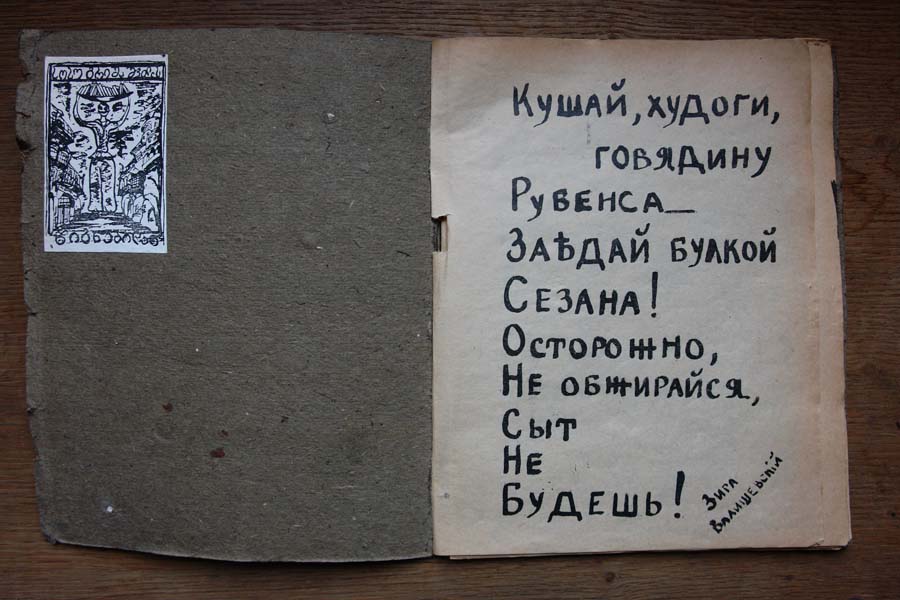 Кушай, худоги,
говядину
Рувенса—
Заѣдай булкой
Сезана!
Осторожно,
Не обжирайся,
Сыт
Не
Будешь!
Зига
Валишевскій